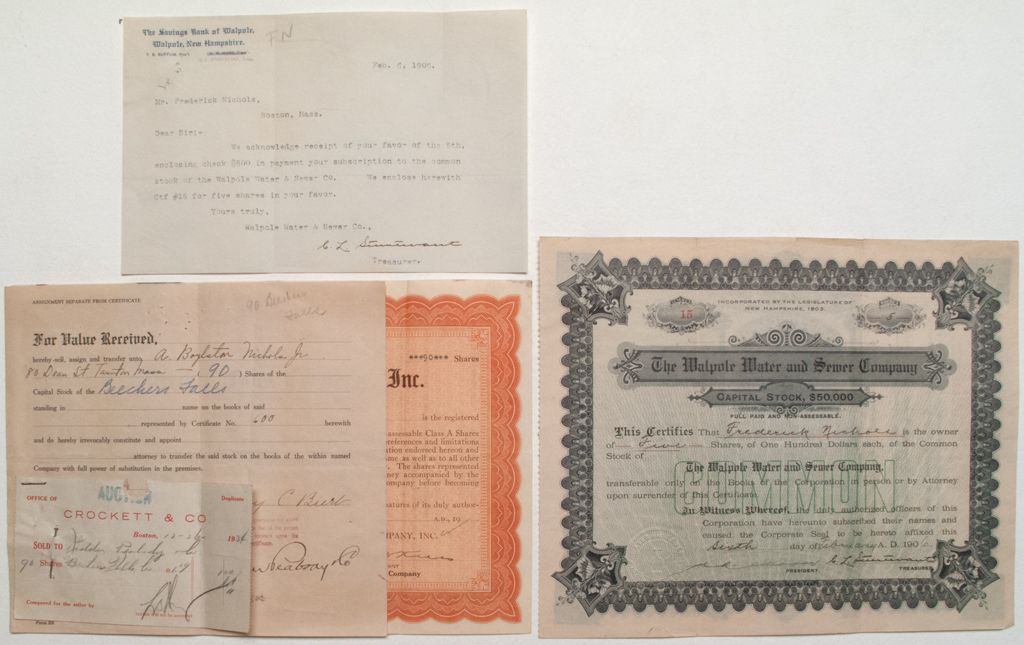 The Savings Bank of Walpole,
Walpole, New Hampshire.
FN
Feb. 6, 1906.
Mr. Frederick Nichols,
Boston, Mass.
Dear Sir:-
We acknowledge receipt of your favor of the 5th,
enclosing check $500 in payment your subscription to the common
stock of the Walpole Water & Sewer Co. We enclose herewith
Ctf #15 for five shares in your favor.
Yours truly,
Walpole Water & Sewer Co.,
C. L. Sturtevant
Treasurer.
ASSIGNMENT SEPARATE FROM CERTIFICATE
90 Beechers
Falls
For Value Received,
hereby sell, assign and transfer unto A. Boylston Nichols Jr
80 Dean St. Taunton Mass — ( 90 ) Shares of the
Capital Stock of the Beechers Falls
standing in name on the books of said
represented by Certificate No. 600 herewith
and do hereby irrevocably constitute and appoint
attorney to transfer the said stock on the books of the within named
Company with full power of substitution in the premises.
Peabody Co
Form 89
OFFICE OF
Duplicate
CROCKETT & CO
Boston, 12-26- 1934
SOLD TO Kidder Peabody & Co
90 Shares
Company for the seller by
***90*** Shares
Inc.
is the registered
assessable Class A Shares
references and limitations
tion endorsed hereon and
me as well as to all other
The shares represented
ney accompanied by the
company before becoming
natures of its duly author-
A.D., 19
PANY, INC.
Company
INCORPORATED BY THE LEGISLATURE OF
NEW HAMPSHIRE, 1903.
15
5
The Walpole Water and Sewer Company
CAPITAL STOCK, $50,000
FULL PAID AND NON-ASSESSABLE.
This Certifies That Frederick Nichols is the owner
of Five Shares, of One Hundred Dollars each, of the Common
Stock of
The Walpole Water and Sewer Company,
COMMON
transferable only on the Books of the Corporation in person or by Attorney
upon surrender of this Certificate.
In Witness Whereof, the duly authorized officers of this
Corporation have hereunto subscribed their names and
caused the Corporate Seal to be hereto affixed this
Sixth day of February A. D. 1906
C. L. Sturtevant
PRESIDENT
TREASURER